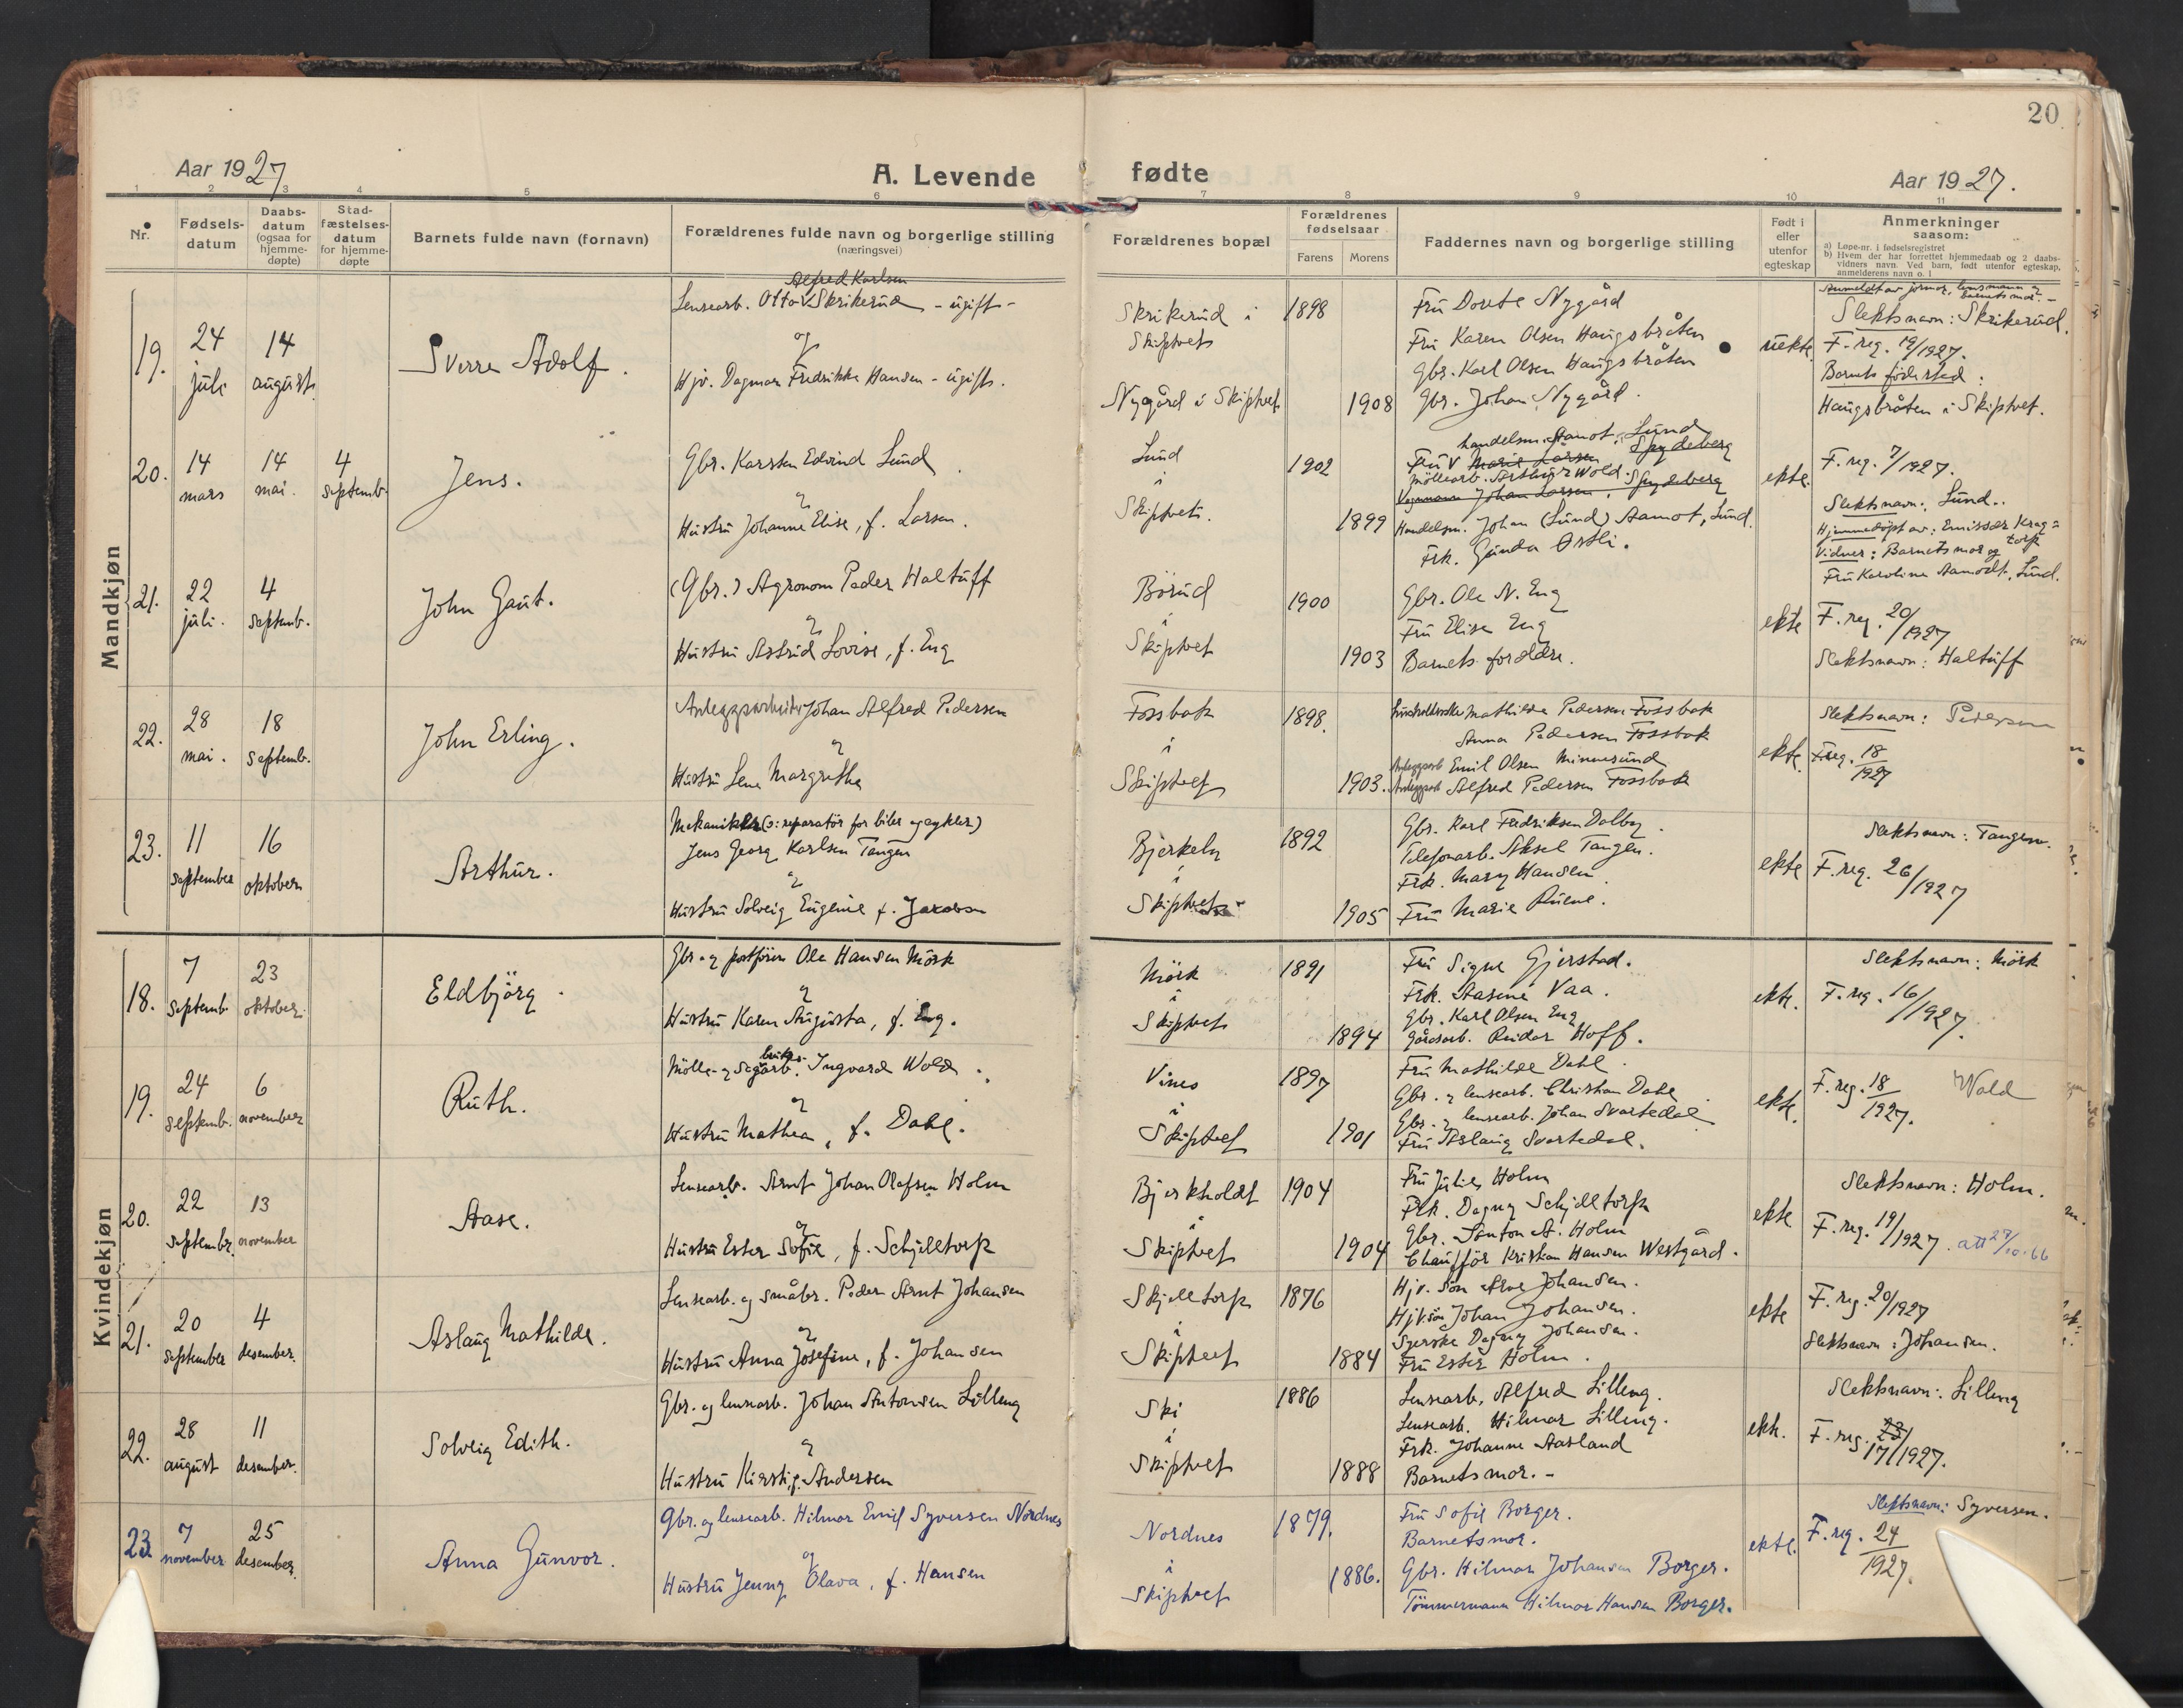 20
Aar 1927
A. Levende fødte
Aar 1927.
1 2 3 4 5 6 7 8 9 10 11
Nr.
Fødsels-
datum
Daabs-
datum
(ogsaa for
hjemme-
døpte)
Stad-
fæstelses-
datum
for hjemme-
døpte
Barnets fulde navn (fornavn)
Forældrenes fulde navn og borgerlige stilling
(næringsvei)
Forældrenes bopæl
Forældrenes
fødselsaar
Farens
Morens
Faddernes navn og borgerlige stilling
Født i
eller
utenfor
egteskap
Anmerkninger
saasom:
a) Løpe-nr. i fødselsregistret
b) Hvem der har forrettet hjemmedaab og 2 daabs-
vidners navn. Ved barn, født utenfor egteskap,
anmelderens navn o. l
Mandkjøn
19.
24
juli
14
august.
Sverre Adolf.
Alfred Karlsen
Lensearb. Otto V Skrikerud - ugift -
og
Hjv. Dagmar Fredrikke Hansen - ugift.
Skrikerud i
Skiptvet
Nygård i Skiptvet
1898
1908
Fru Dorte Nygård
Fru Karen Olsen Haugsbråten
Gbr. Karl Olsen Haugsbråten
Gbr. Johan Nygård.
uekte
Anmeldt av jormor, lensmann og
barnets mor. -
Slektsnavn: Skrikerud.
F. reg. 19/1927.
Barnets födested:
Haugsbråten i Skiptvet.
20.
14
mars
14
mai.
4
septemb.
Jens.
Gbr. Karsten Edvind Lund
og
Hustru Johanne Elise, f. Larsen.
Lund
i
Skiptvet.
1902
1899
handelsm. Aamot, Lund
Fru V Marie Larsen Spydeberg
möllearb. Wold. Spydeberg
Vognmann Johan Larsen, Spydeberg
Handelsm. Johan (Lund) Aamot, Lund.
Frk. Gunda Østli.
ekte.
F. reg. 7/1927.
Slektsnavn: Lund.
Hjemmedöpt av: Emissær Krag-
torp
Vidner: Barnets mor og
Fru Karoline Aamodt, Lund.
21.
22
juli.
4
septemb.
John Gaut.
(Gbr.) Agronom Peder Haltuff
og
Hustru Astrid Lovise, f. Eng
Börud
i
Skiptvet
1900
1903
Gbr. Ole N. Eng
Fru Elise Eng
Barnets foreldre.
ekte
F. reg. 20/1927
Slektsnavn: Haltuff
22.
28
mai.
18
septemb.
John Erling.
Anleggsarbeider Johan Alfred Pedersen
og
Hustru Lene Margrethe
Fossbak
i
Skiptvet
1898.
1903.
Husholderske Mathilde Pedersen Fossbak
Anna Pedersen Fossbak
Anleggsarb Emil Olsen Minnesund
Anleggsarb Alfred Pedersen Fossbak
ekte.
Slektsnavn: Pedersen
F. reg. 18/1927
23.
11
september
16
oktober
Arthur.
Mekaniker (o: reparatör for biler og cykler)
Jens Georg Karlsen Tangen
og
Hustru Solveig Eugenie f. Jacobsen
Bjerkely
i
Skiptvet
1892
1905
Gbr. Karl Fredriksen Dalby.
Telefonarb. Aksel Tangen.
Frk. Mary Hansen.
Fru Marie Ruene.
ekte
Slektsnavn: Tangen.
F. reg. 26/1927
Kvindekjøn
18.
7
septemb.
23
oktober.
Eldbjörg.
Gbr. og postförer Ole Hansen Mörk
og
Hustru Karen Augusta, f. Eng.
Mörk
i
Skiptvet
1891
1894
Fru Signe Gjerstad.
Frk. Aasene Vaa.
Gbr. Karl Olsen Eng
Gårdsarb. Reidar Hoff.
ekte.
Slektsnavn: Mörk
F. reg. 16/1927.
19.
24
septemb.
6
november
Ruth.
Mölle- og Sagarb. Ingvard Wold.
og
Hustru Mathea, f. Dahl.
Vines
i
Skiptvet
1897
1901
Fru Mathilde Dahl.
Gbr. og lensearb. Christian Dahl
Gbr. og lensearb. Johan Svartedal
Fru Aslaug Svartedal.
ekte.
F. reg. 18/1927.
Wold
20.
22
septembr.
13
november
Aase.
Lensearb. Arnt Johan Olafsen Holm
og
Hustru Ester Sofie, f. Schjeltorp
Bjerkholdt
i
Skiptvet
1904
1904
Fru Julie Holm
Frk. Dagny Schjeltorp
Gbr. Anton A. Holm
Chaufför Kristian Hansen Westgård.
ekte
Slektsnavn: Holm.
F. reg. 19/1927. att 27/10.66
21.
20
september
4
desember.
Aslaug Mathilde.
Lensearb. og småbr. Peder Arnt Johansen
og
Hustru Anna Josefine, f. Johansen
Skjeltorp
i
Skiptvet
1876
1884
Hjv. sön Arne Johansen.
Hjv. sön Johan Johansen.
Syerske Dagny Johansen.
Fru Ester Holm.
ekte
F. reg. 20/1927
Slektsnavn: Johansen.
22.
28
august
11
desember.
Solveig Edith.
Gbr. og lensearb. Johan Antonsen Lilleng
og
Hustru Kirsti, f. Andersen
Ski
i
Skiptvet
1886
1888
Lensearb. Alfred Lilleng.
Lensearb. Hilmar Lilleng.
Frk. Johanne Aasland
Barnets mor. -
ekte.
Slektsnavn: Lilleng
F. reg. 23/
17/1927.
23.
7
november
25
desember.
Anna Gunvor.
Gbr. og lensearb. Hilmar Emil Syversen Nordnes
og
Hustru Jenny Olava, f. Hansen
Nordnes
i
Skiptvet
1879.
1886.
Fru Sofie Borger.
Barnets mor.
Gbr. Hilmar Johansen Borger.
Tömmermann Hilmar Hansen Borger.
ekte.
Slektsnavn: Syversen.
F. reg. 24/1927.